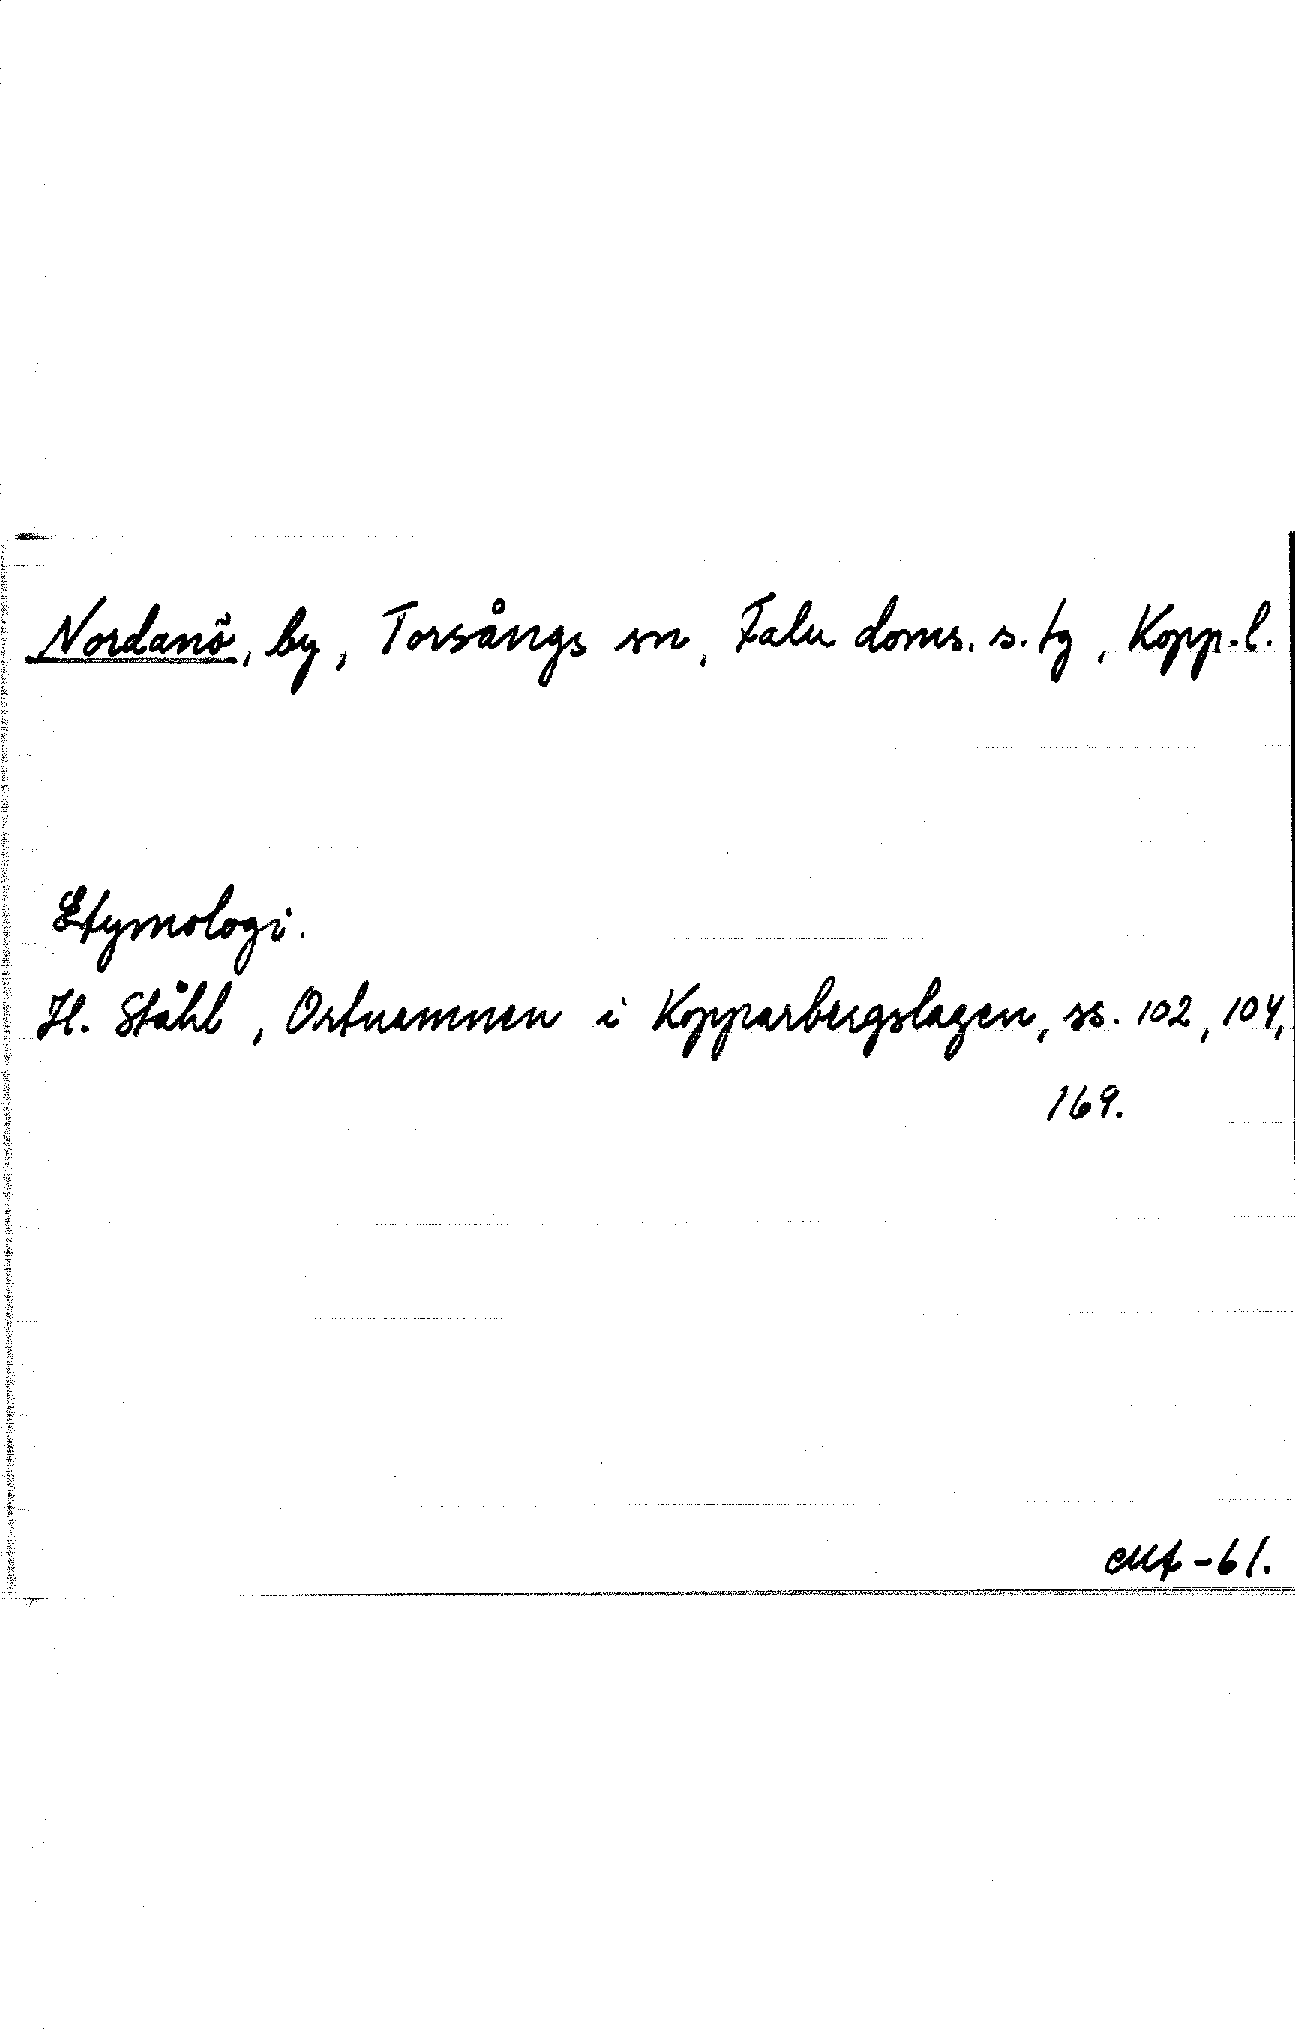 Nordanö, by, Torsångs sn, Falu doms. s. tg, Kopp. l.
Etymologi.
H. Ståhl, Ortnamnen i Kopparbergslagen, ss. 102, 104,
169.
-61.